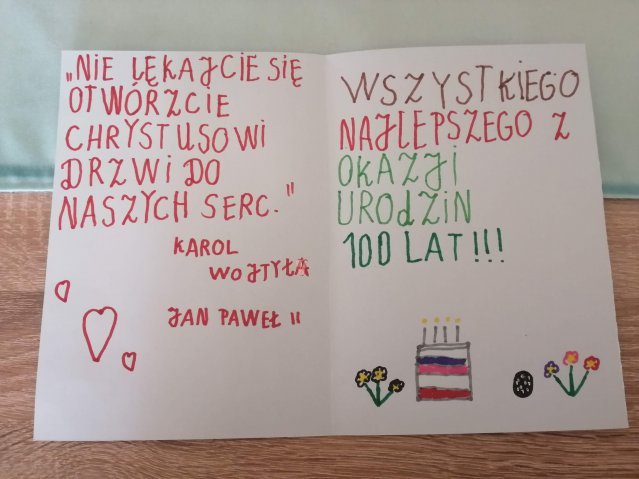 „NIE LĘKAJCIE SIĘ
OTWÓRZCIE
CHRYSTUSOWI
DRZWI DO
NASZYCH SERC."
KAROL
WOJTYŁA
JAN PAWEŁ II
WSZYSTKIEGO
NAJLEPSZEGO Z
OKAZJI
URODZIN
100 LAT!!!